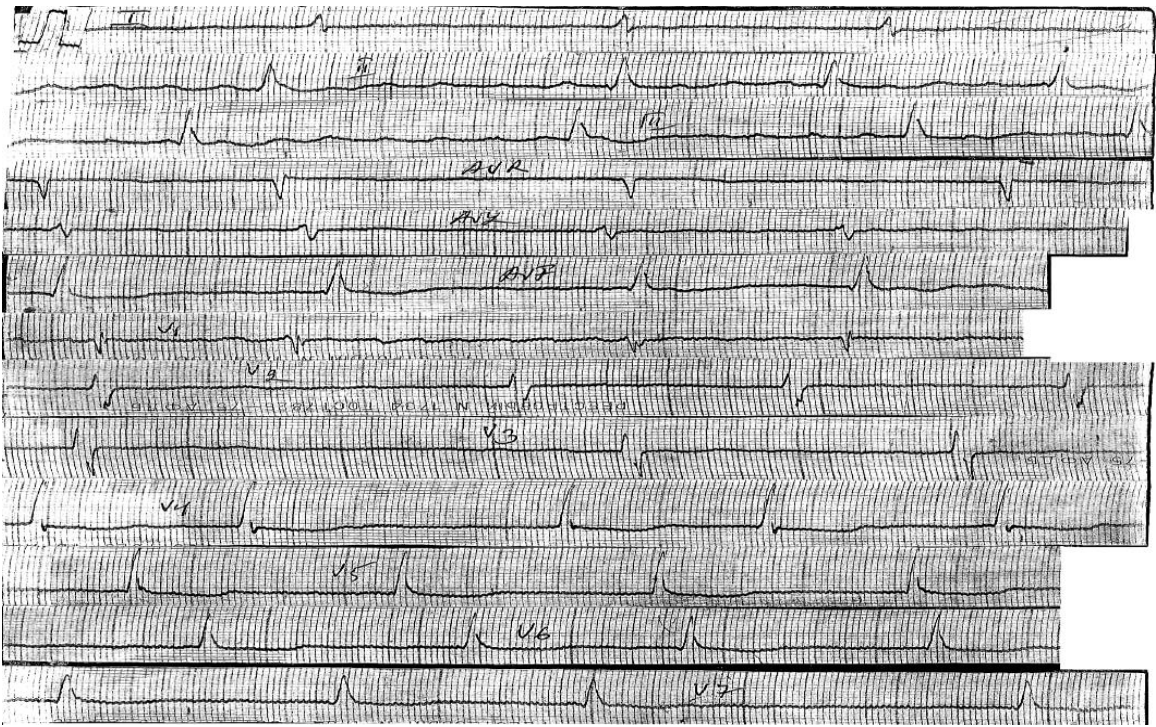 I
II
III
AVR
AVL
AVF
V1
V2
V3
V4
V5
V6
V7